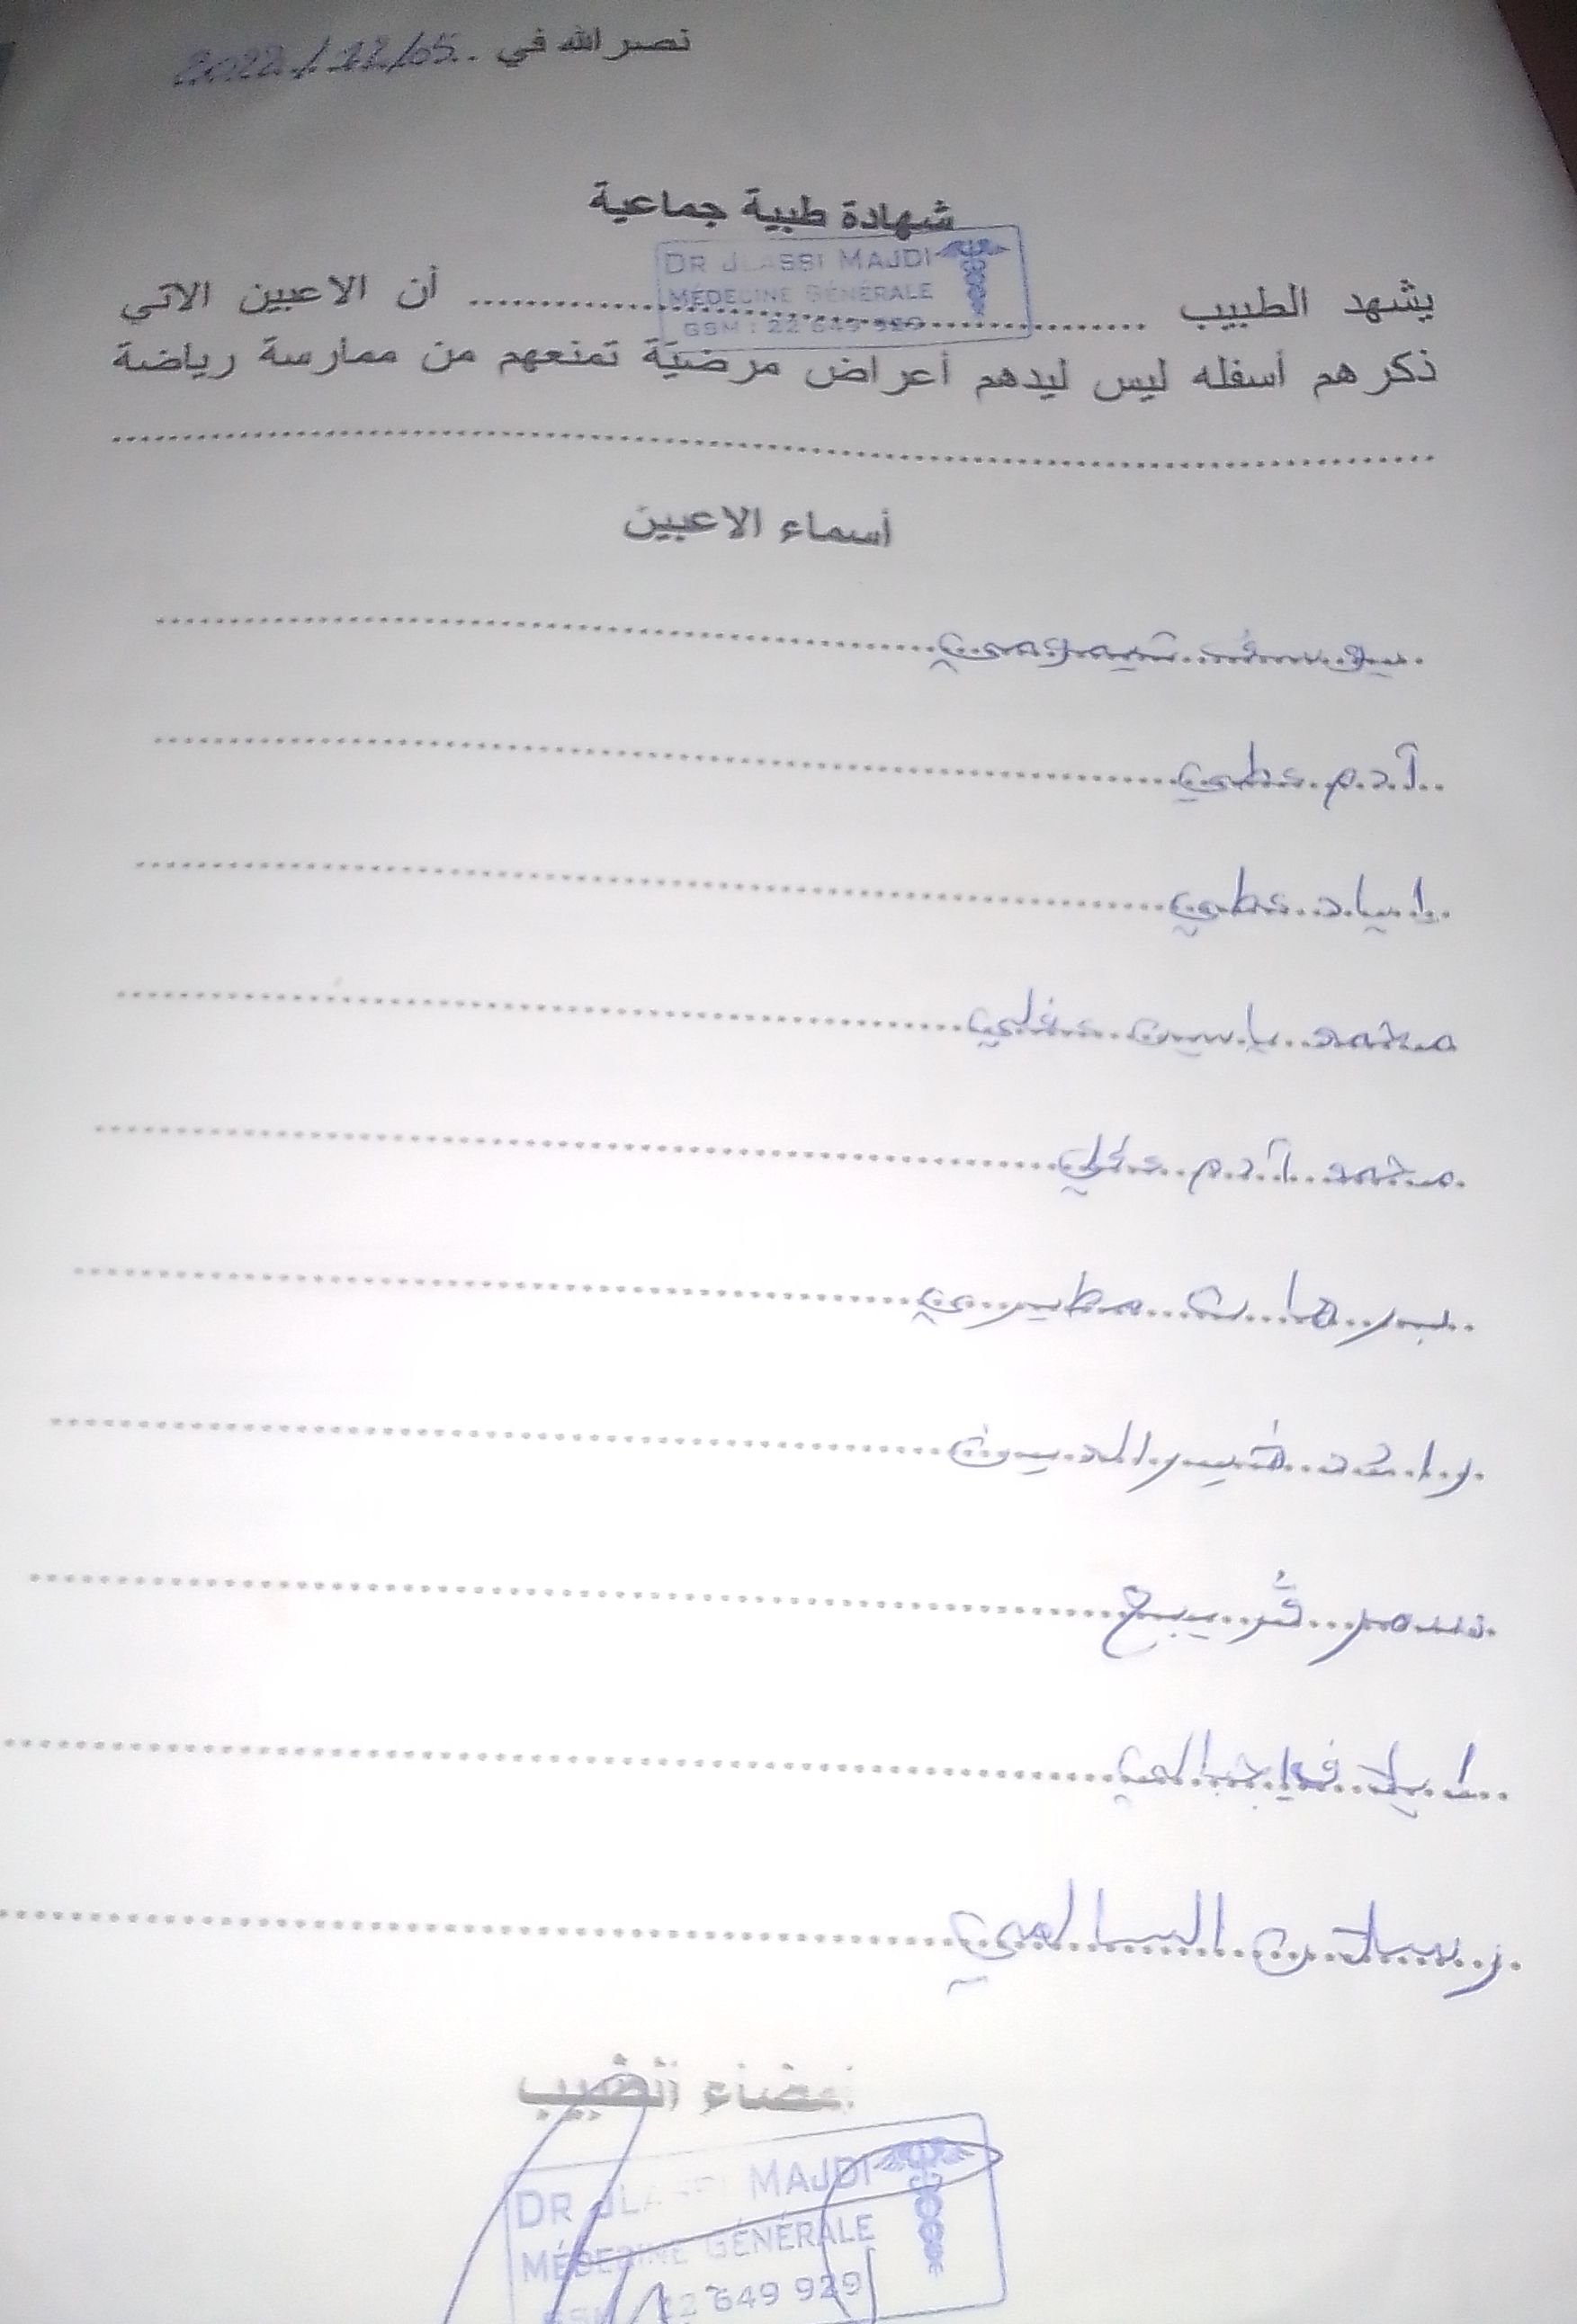 نصر الله في 2022/12/05
شهادة طبية جماعية
DR JLASSI MAJDI
MÉDECINE GÉNÉRALE
GSM : 22 649 929
يشهد الطبيب أن الاعبين الاتي
ذكرهم أسفله ليس ليدهم أعراض مرضيّة تمنعهم من ممارسة رياضة
أسماء الاعبين
يوسف تيمومي
آدم عطي
اياد عطي
محمد ياسين عفلي
محمد آدم
برهان مطيري
راشد خير الدين
قريبع
ايلاف جبالي
رسلان السالمي
إمضاء الطبيب
DR JLASSI MAJDI
MÉDECINE GÉNÉRALE
GSM : 22 649 929